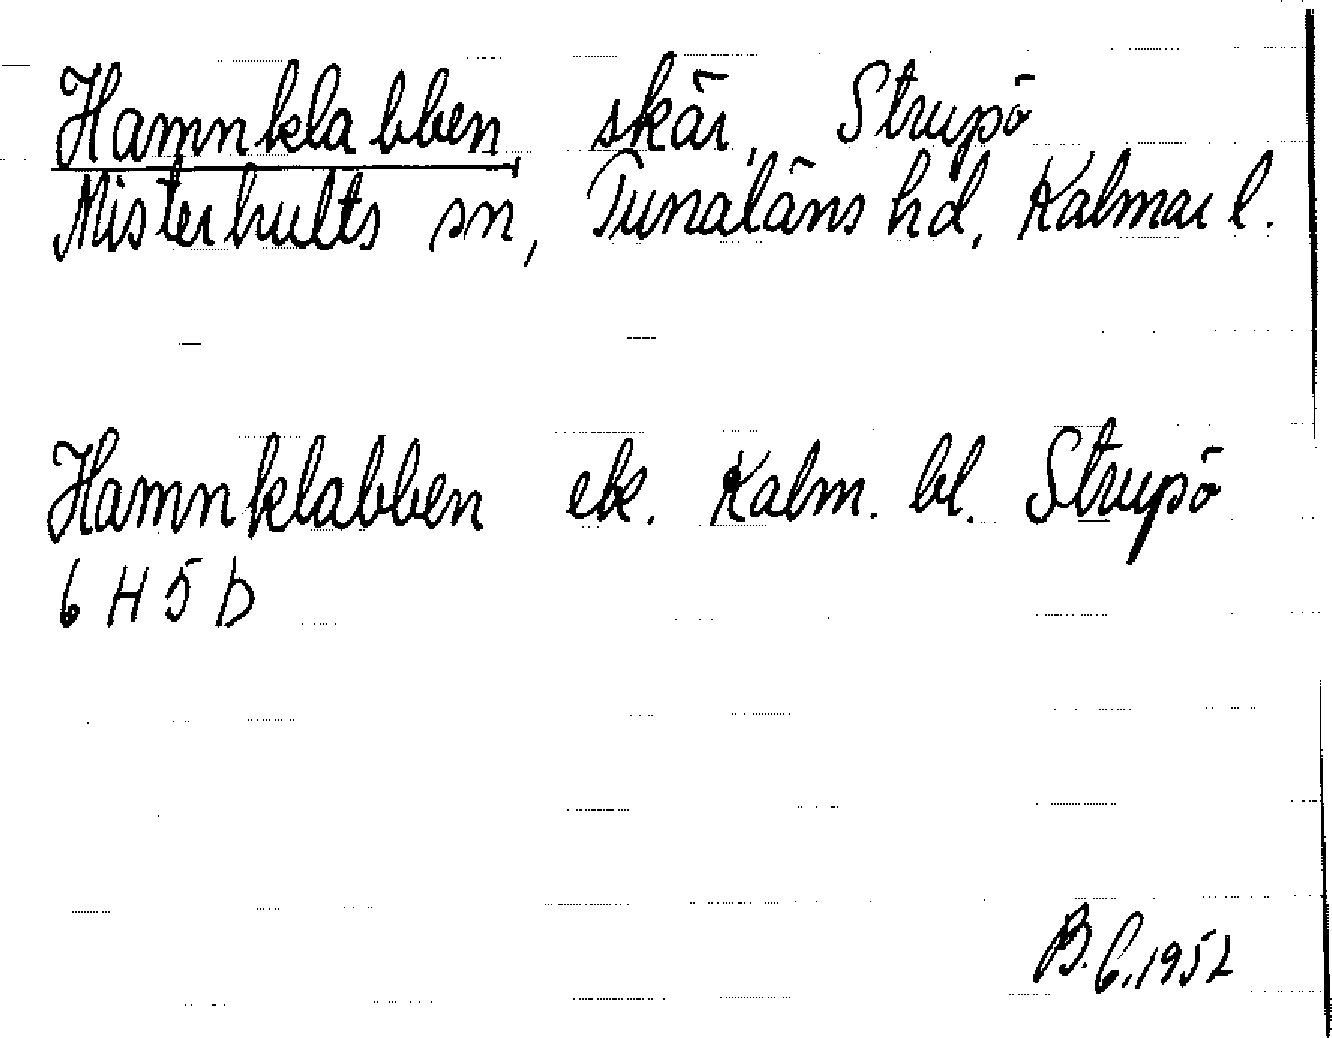 Hamnklabben, skär, Strupö
Misterhults sn, Tunaläns hd, Kalmar l.
Hamnklabben ek. Kalm. bl. Strupö
6 H 5 D
B. G. 1952